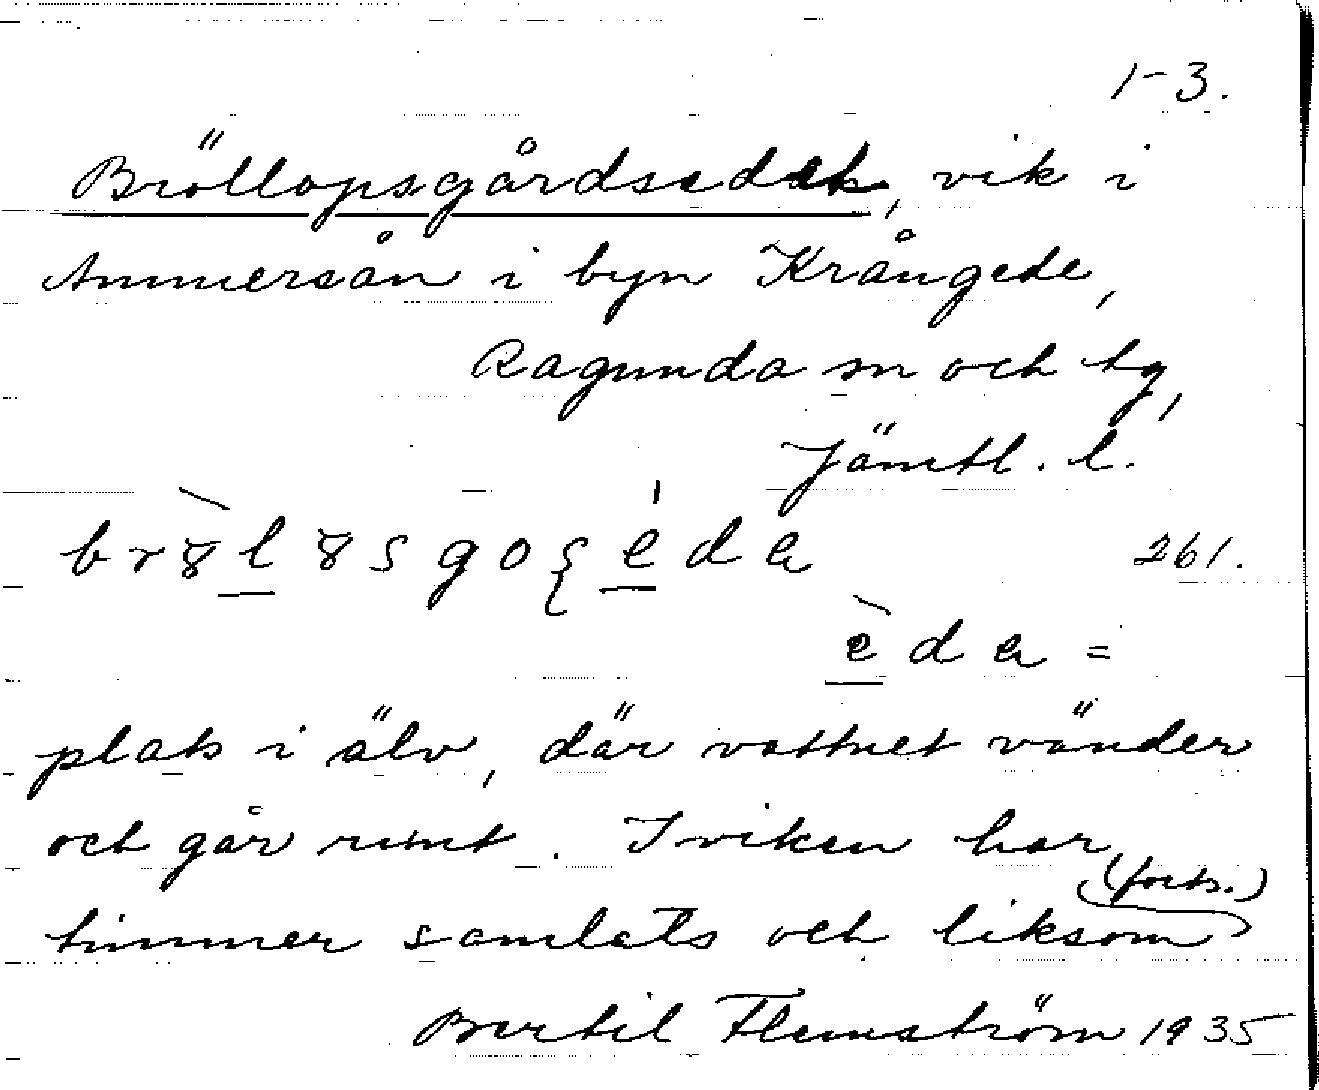 1-3.
Bröllopsgårdsedet, vik i
Ammersån i byn Krångede,
Ragunda sn och tg,
Jämtl. l.
261.
plats i älv, där vattnet vänder
och går runt. I viken har
(forts.)
timmer samlats och liksom
Bertil Flemström 1935